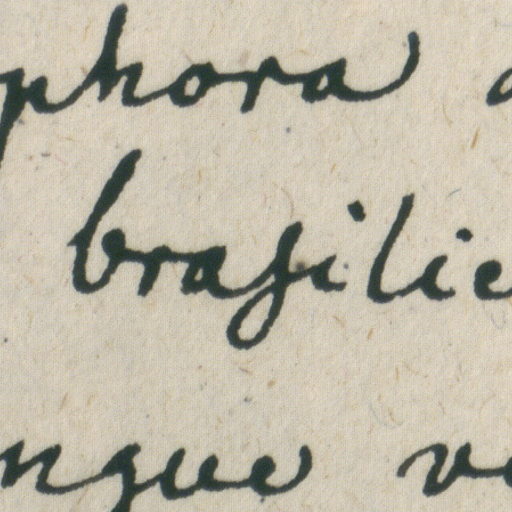 phora
brasilie
ngue